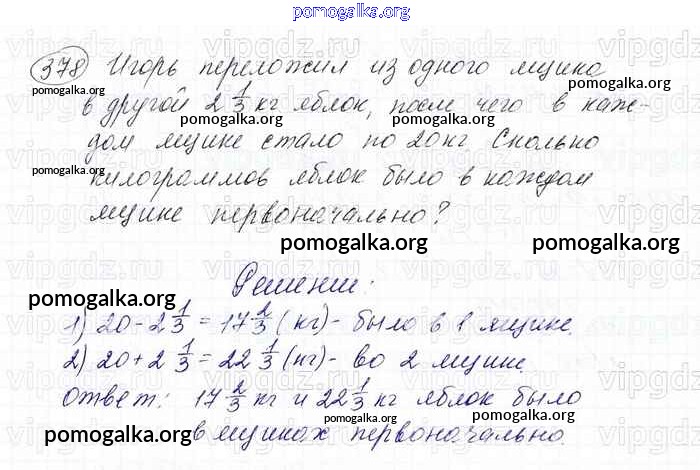 pomogalka.org
378 Игорь переложил из одного ящика
в другой 2 1/3 кг яблок, после чего в каж-
дом ящике стало по 20 кг. Сколько
килограммов яблок было в каждом
ящике первоначально?
Решение:
1) 20 - 2 1/3 = 17 2/3 (кг) - было в 1 ящике.
2) 20 + 2 1/3 = 22 1/3 (кг) - во 2 ящике.
Ответ: 17 2/3 кг и 22 1/3 кг яблок было
в ящиках первоначально.